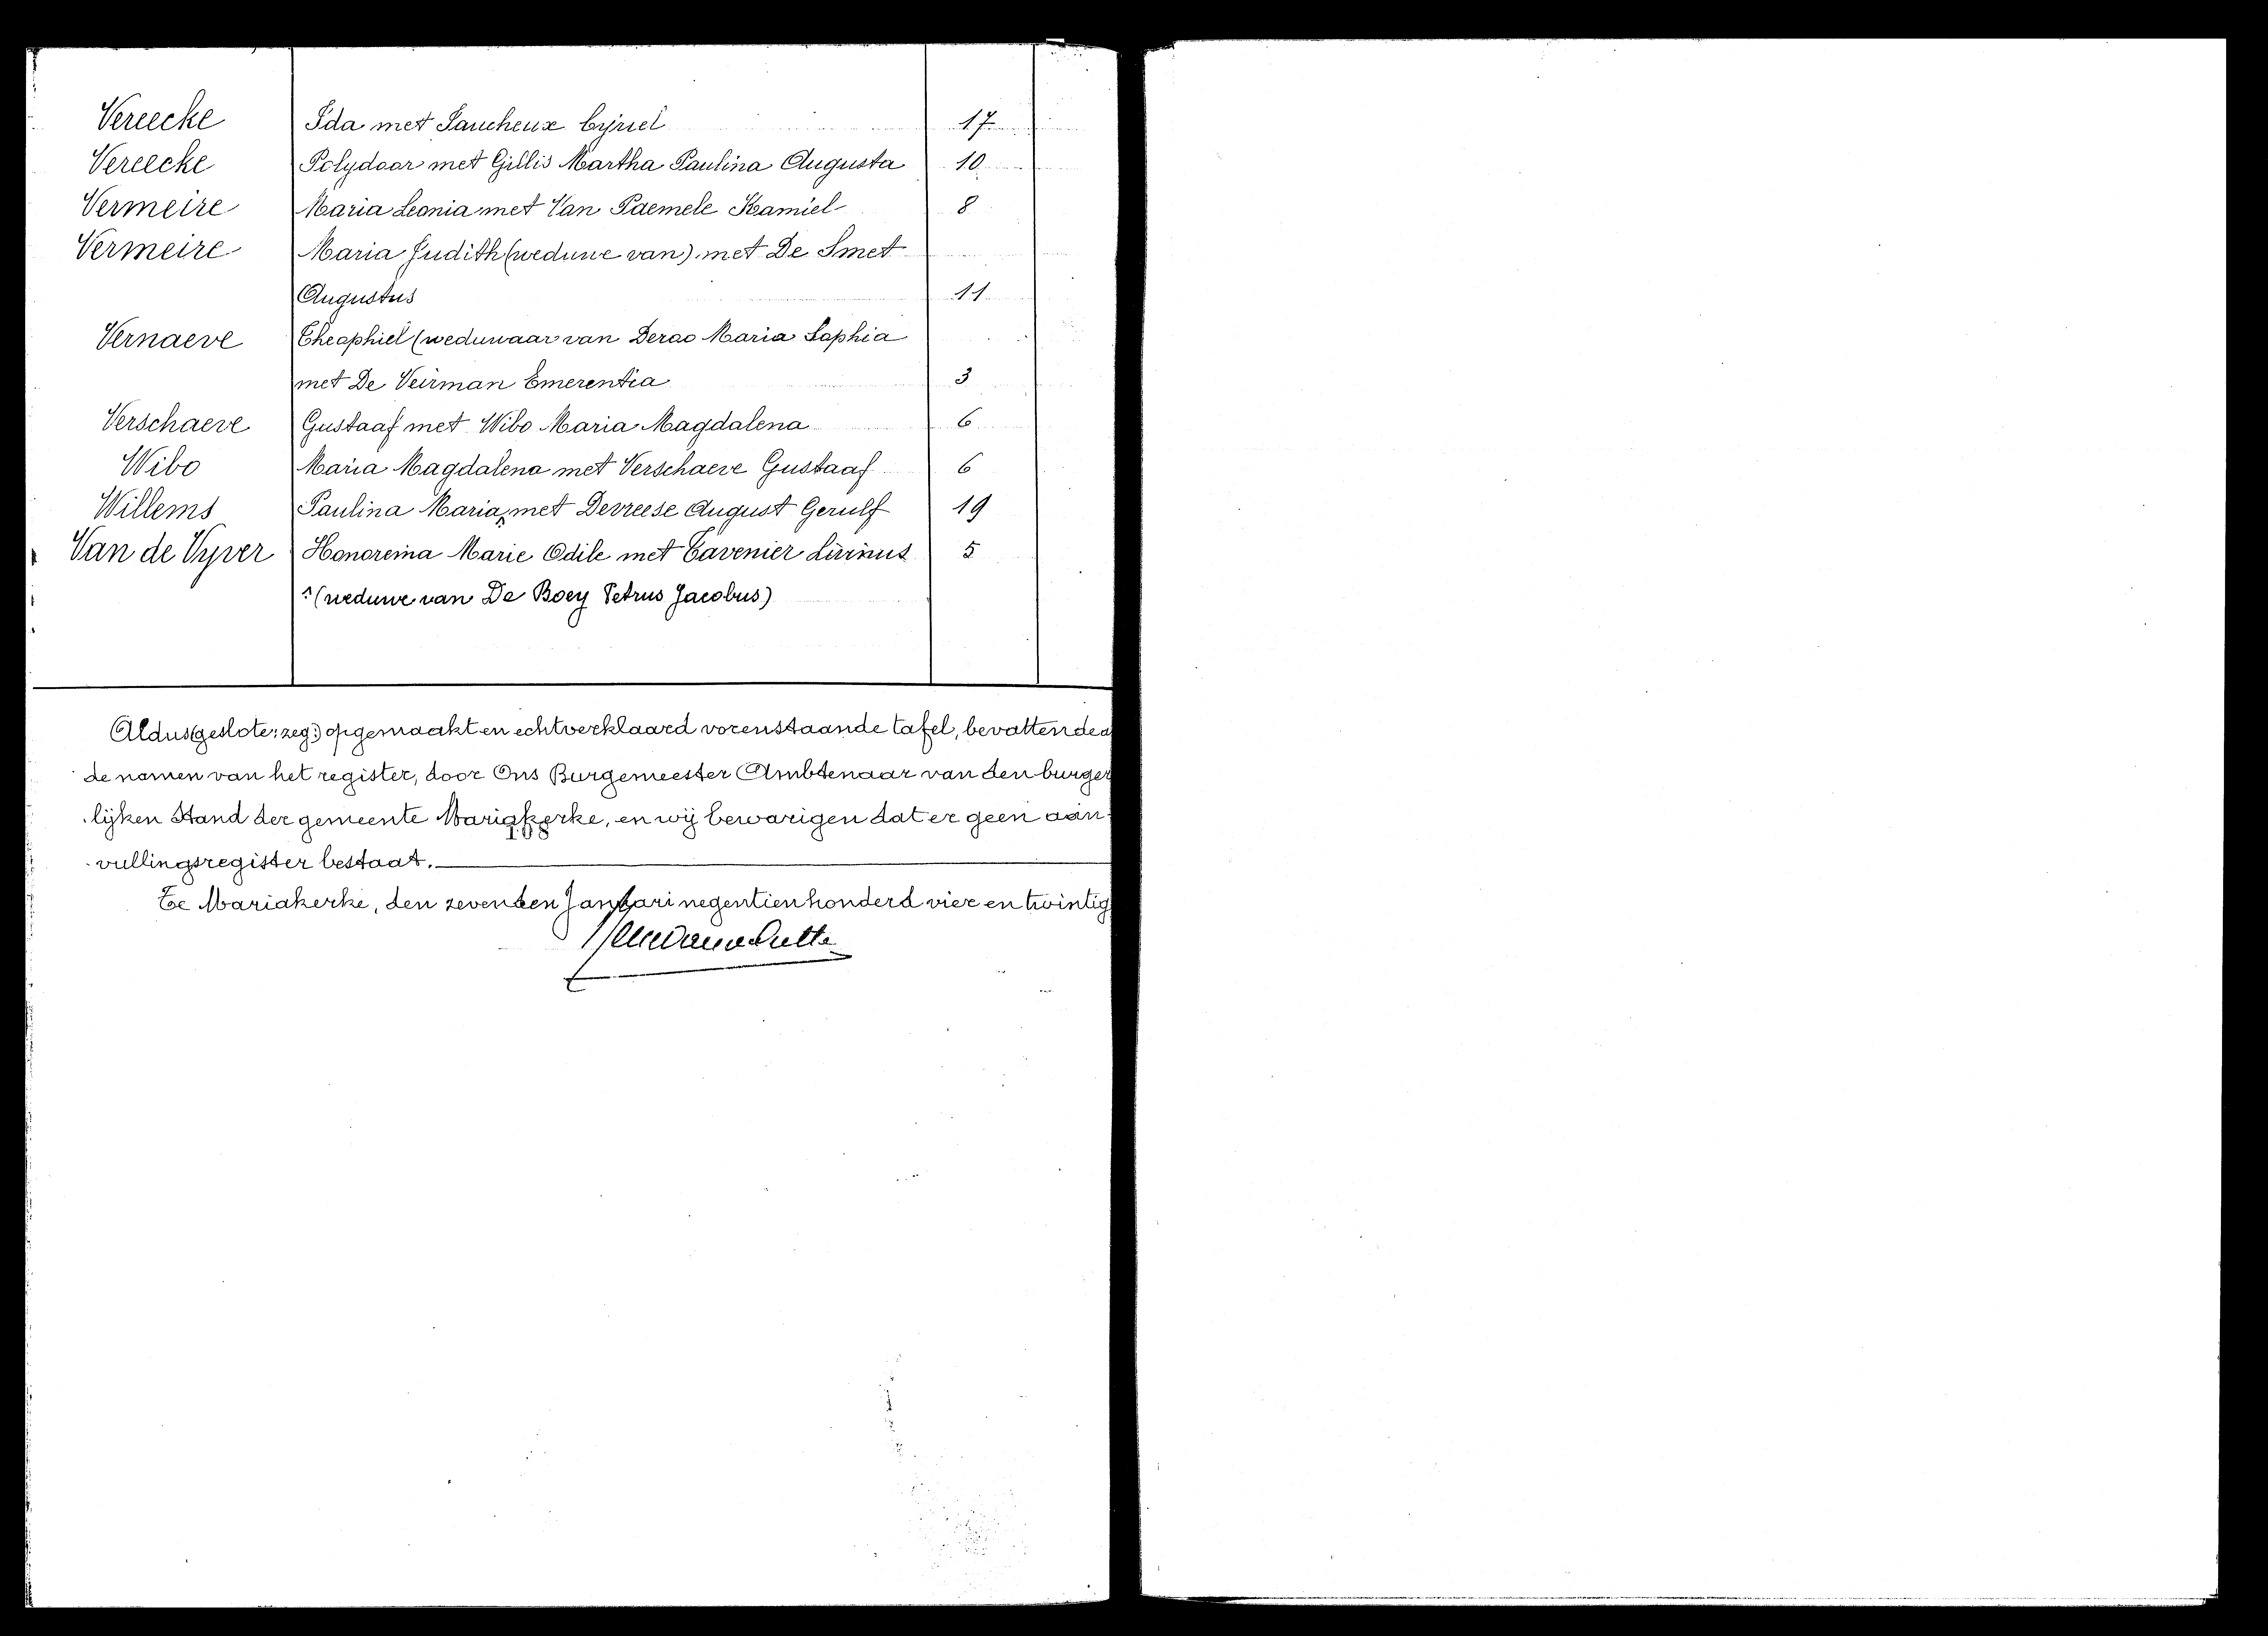 Vereecke Ida met Saucheux Cyriel 17
Vereecke Polydoor met Gillis Martha Paulina Augusta 10
Vermeire Maria Leonia met Van Paemele Kamiel 8
Vermeire Maria Judith (weduwe van) met De Smet
Augustus 11
Vernaeve Theophiel (weduwaar van Deroo Maria Sophia
met De Veirman Emerentia 3
Verschaeve Gustaaf met Wibo Maria Magdalena 6
Wibo Maria Magdalena met Verschaeve Gustaaf 6
Willems Paulina Maria, met Devreese August Gerulf 19
Van de Vyver Honoreina Marie Odile met Tavenier Livinus 5
(weduwe van De Boey Petrus Jacobus)
Aldus (geslote: zeg:) opgemaakt en echtverklaard vorenstaande tafel, bevattende a
de namen van het register, door Ons Burgemeester Ambtenaar van den burger
lijken Stand der gemeente Mariakerke, en wij bewarigen dat er geen aan-
vullingsregister bestaat.
Te Mariakerke, den zevenden Januari negentienhonderd vier en twintig